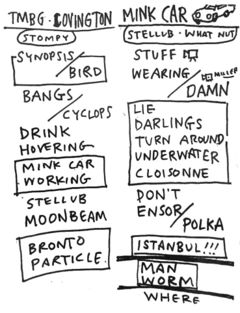 TMBG · COVINGTON
STOMPY
SYNOPSIS/
BIRD
BANGS/
CYCLOPS
DRINK
HOVERING
MINK CAR
WORKING
STELLUB
MOONBEAM
BRONTO
PARTICLE
MINK CAR
STELLUB · WHAT NUT
STUFF
WEARING/
MILLER
DAMN
LIE
DARLINGS
TURN AROUND
UNDERWATER
CLOISONNE
DON'T
ENSOR/
POLKA
ISTANBUL!!!
MAN
WORM
WHERE